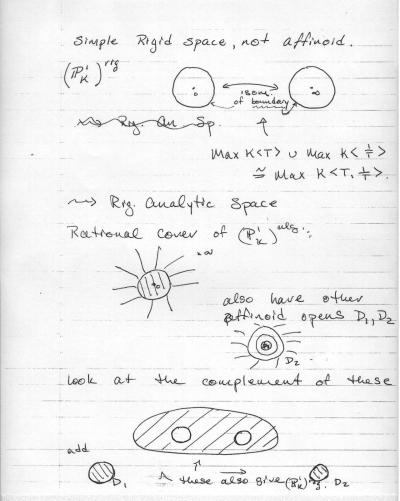 Simple Rigid space, not affinoid.
(ℙ¹_K)^rig
0 isom. of boundary ∞
~~> Rig. An. Sp.
Max K<T> ∪ Max K<1/T>
≅ Max K<T, 1/T>.
~~> Rig. Analytic Space
Rational cover of (ℙ¹_K)
.∞
0
also have other
affinoid opens D₁, D₂
D₂
look at the complement of these
add
D₁ these also give (ℙ¹_K)^rig. D₂